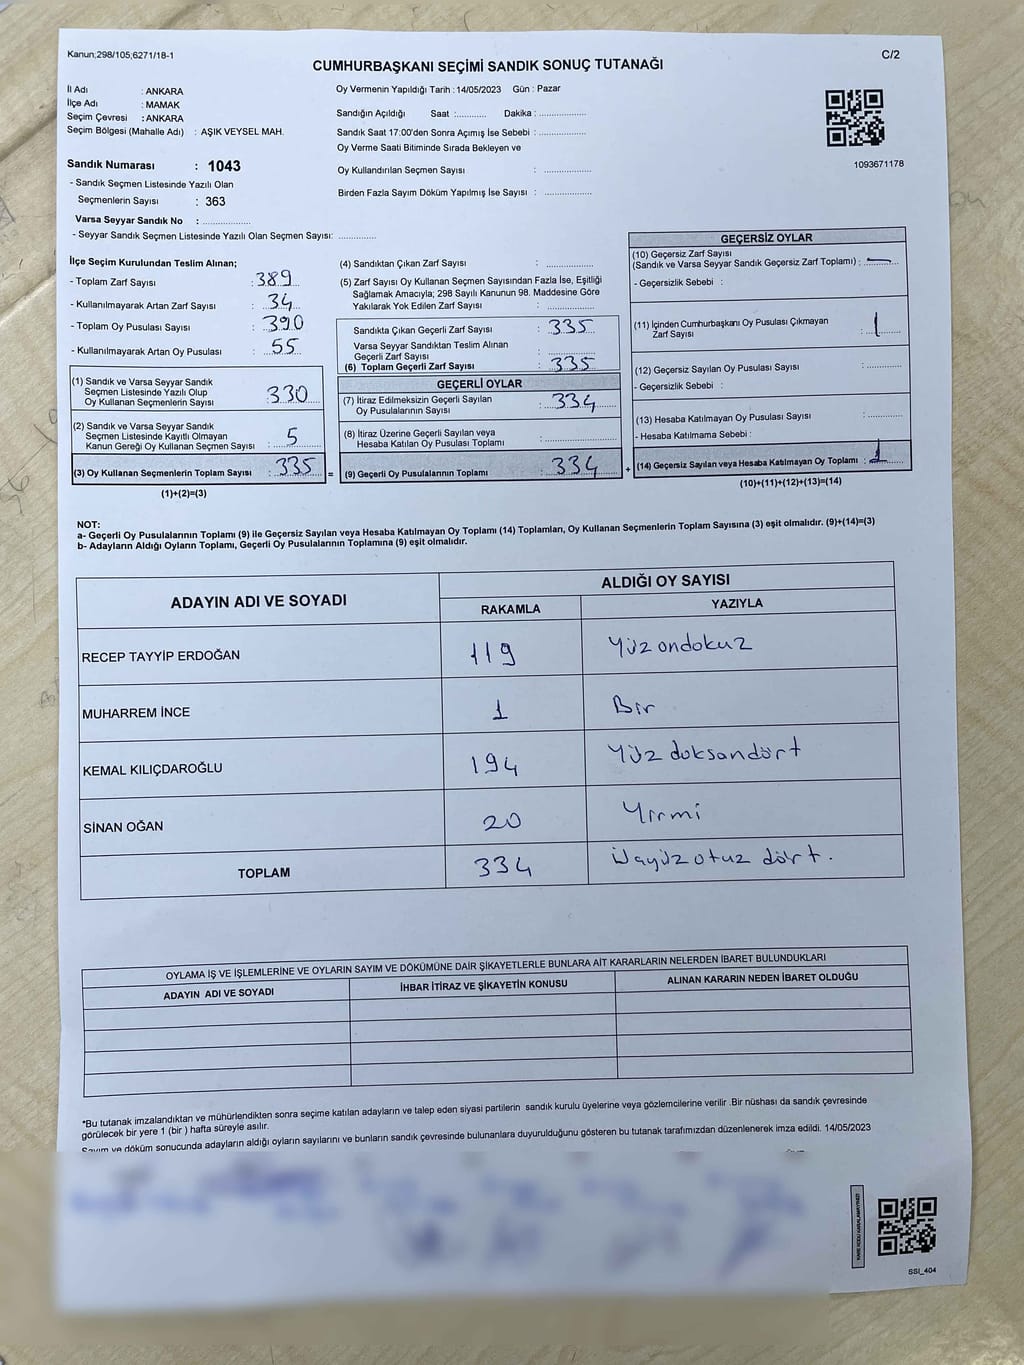 Kanun;298/105;6271/18-1
C/2
CUMHURBAŞKANI SEÇİMİ SANDIK SONUÇ TUTANAĞI
İl Adı : ANKARA
İlçe Adı : MAMAK
Seçim Çevresi : ANKARA
Seçim Bölgesi (Mahalle Adı) : AŞIK VEYSEL MAH.
Sandık Numarası : 1043
- Sandık Seçmen Listesinde Yazılı Olan
Seçmenlerin Sayısı : 363
Varsa Seyyar Sandık No : ..............
- Seyyar Sandık Seçmen Listesinde Yazılı Olan Seçmen Sayısı: ............
Oy Vermenin Yapıldığı Tarih : 14/05/2023 Gün : Pazar
Sandığın Açıldığı Saat :.......... Dakika : ..............
Sandık Saat 17:00'den Sonra Açımış İse Sebebi : ..............
Oy Verme Saati Bitiminde Sırada Bekleyen ve
Oy Kullandırılan Seçmen Sayısı : ..............
Birden Fazla Sayım Döküm Yapılmış İse Sayısı : ..............
1093671178
İlçe Seçim Kurulundan Teslim Alınan;
- Toplam Zarf Sayısı : 389
- Kullanılmayarak Artan Zarf Sayısı : 34
- Toplam Oy Pusulası Sayısı : 390
- Kullanılmayarak Artan Oy Pusulası : 55
(1) Sandık ve Varsa Seyyar Sandık
Seçmen Listesinde Yazılı Olup
Oy Kullanan Seçmenlerin Sayısı : 330
(2) Sandık ve Varsa Seyyar Sandık
Seçmen Listesinde Kayıtlı Olmayan
Kanun Gereği Oy Kullanan Seçmen Sayısı : 5
(3) Oy Kullanan Seçmenlerin Toplam Sayısı : 335 =
(1)+(2)=(3)
(4) Sandıktan Çıkan Zarf Sayısı : ..............
(5) Zarf Sayısı Oy Kullanan Seçmen Sayısından Fazla İse, Eşitliği
Sağlamak Amacıyla; 298 Sayılı Kanunun 98. Maddesine Göre
Yakılarak Yok Edilen Zarf Sayısı : ..............
Sandıkta Çıkan Geçerli Zarf Sayısı : 335
Varsa Seyyar Sandıktan Teslim Alınan
Geçerli Zarf Sayısı : ..............
(6) Toplam Geçerli Zarf Sayısı : 335
GEÇERLİ OYLAR
(7) İtiraz Edilmeksizin Geçerli Sayılan
Oy Pusulalarının Sayısı : 334
(8) İtiraz Üzerine Geçerli Sayılan veya
Hesaba Katılan Oy Pusulası Toplamı : ..............
(9) Geçerli Oy Pusulalarının Toplamı : 334 +
GEÇERSİZ OYLAR
(10) Geçersiz Zarf Sayısı
(Sandık ve Varsa Seyyar Sandık Geçersiz Zarf Toplamı) : —
- Geçersizlik Sebebi :
(11) İçinden Cumhurbaşkanı Oy Pusulası Çıkmayan
Zarf Sayısı : 1
(12) Geçersiz Sayılan Oy Pusulası Sayısı : ..........
- Geçersizlik Sebebi :
(13) Hesaba Katılmayan Oy Pusulası Sayısı : ..........
- Hesaba Katılmama Sebebi :
(14) Geçersiz Sayılan veya Hesaba Katılmayan Oy Toplamı : 1
(10)+(11)+(12)+(13)=(14)
NOT:
a- Geçerli Oy Pusulalarının Toplamı (9) ile Geçersiz Sayılan veya Hesaba Katılmayan Oy Toplamı (14) Toplamları, Oy Kullanan Seçmenlerin Toplam Sayısına (3) eşit olmalıdır. (9)+(14)=(3)
b- Adayların Aldığı Oyların Toplamı, Geçerli Oy Pusulalarının Toplamına (9) eşit olmalıdır.
ADAYIN ADI VE SOYADI
ALDIĞI OY SAYISI
RAKAMLA YAZIYLA
RECEP TAYYİP ERDOĞAN 119 Yüz ondokuz
MUHARREM İNCE 1 Bir
KEMAL KILIÇDAROĞLU 194 Yüz doksandört
SİNAN OĞAN 20 Yirmi
TOPLAM 334 Üçyüz otuz dört.
OYLAMA İŞ VE İŞLEMLERİNE VE OYLARIN SAYIM VE DÖKÜMÜNE DAİR ŞİKAYETLERLE BUNLARA AİT KARARLARIN NELERDEN İBARET BULUNDUKLARI
ADAYIN ADI VE SOYADI İHBAR İTİRAZ VE ŞİKAYETİN KONUSU ALINAN KARARIN NEDEN İBARET OLDUĞU
*Bu tutanak imzalandıktan ve mühürlendikten sonra seçime katılan adayların ve talep eden siyasi partilerin sandık kurulu üyelerine veya gözlemcilerine verilir .Bir nüshası da sandık çevresinde
görülecek bir yere 1 (bir ) hafta süreyle asılır.
Sayım ve döküm sonucunda adayların aldığı oyların sayılarını ve bunların sandık çevresinde bulunanlara duyurulduğunu gösteren bu tutanak tarafımızdan düzenlenerek imza edildi. 14/05/2023
SSI_404